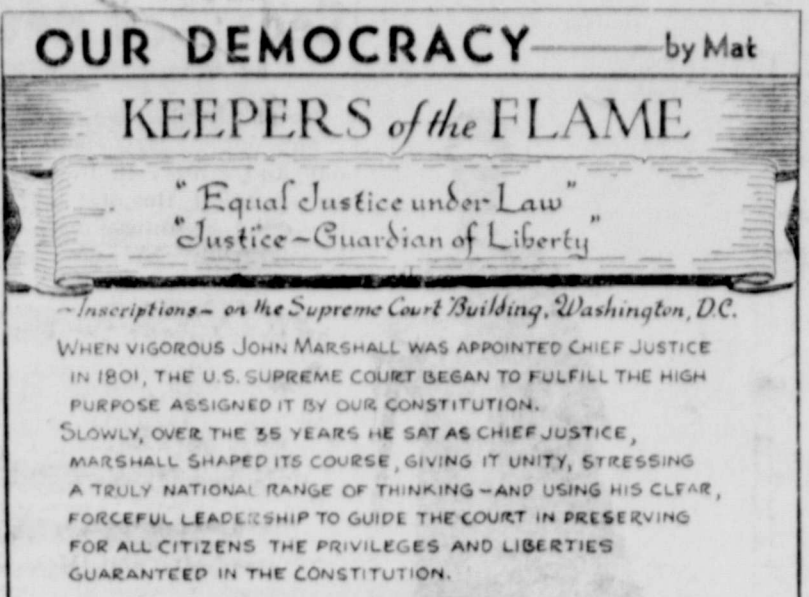 OUR DEMOCRACY — by Mat
KEEPERS of the FLAME
"Equal Justice under Law"
"Justice - Guardian of Liberty"
~Inscriptions~ on the Supreme Court Building, Washington, D.C.
WHEN VIGOROUS JOHN MARSHALL WAS APPOINTED CHIEF JUSTICE
IN 1801, THE U.S. SUPREME COURT BEGAN TO FULFILL THE HIGH
PURPOSE ASSIGNED IT BY OUR CONSTITUTION.
SLOWLY, OVER THE 35 YEARS HE SAT AS CHIEF JUSTICE,
MARSHALL SHAPED ITS COURSE, GIVING IT UNITY, STRESSING
A TRULY NATIONAL RANGE OF THINKING - AND USING HIS CLEAR,
FORCEFUL LEADERSHIP TO GUIDE THE COURT IN PRESERVING
FOR ALL CITIZENS THE PRIVILEGES AND LIBERTIES
GUARANTEED IN THE CONSTITUTION.